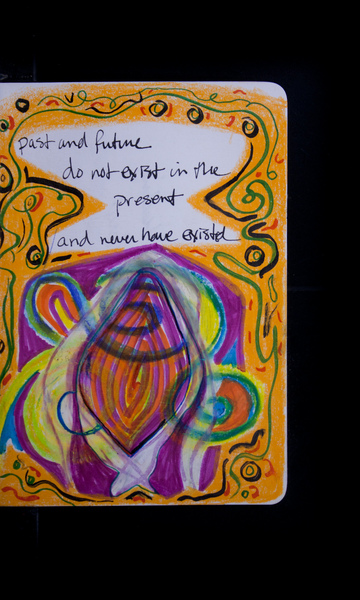 past and future
do not exist in the
present
and never have existed